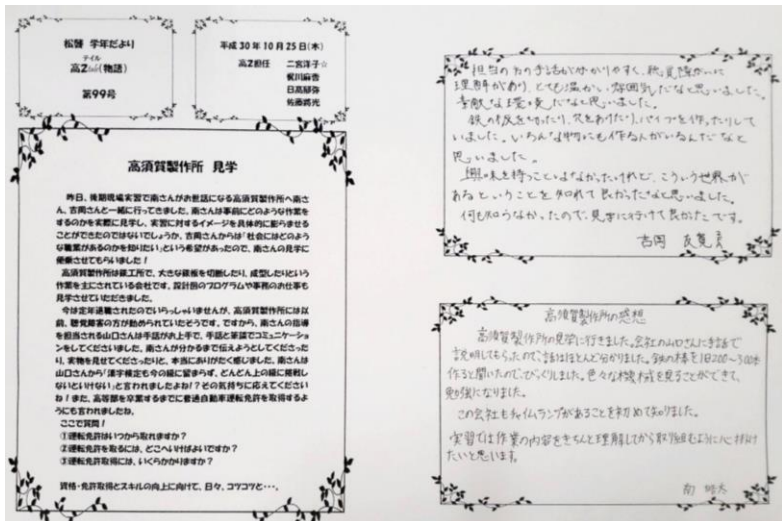 松聾 学年だより
テイル
高2Tale(物語)
第99号
平成30年10月25日(木)
高2担任 二宮洋子☆
梶川麻香
日高郁弥
佐藤将光
高須賀製作所 見学
昨日、後期現場実習で南さんがお世話になる高須賀製作所へ南さ
ん、吉岡さんと一緒に行ってきました。南さんは事前にどのような作業を
するのかを実際に見学し、実習に対するイメージを具体的に膨らませる
ことができたのではないでしょうか。吉岡さんからは「社会にはどのよう
な職業があるのかを知りたい」という希望があったので、南さんの見学に
便乗させてもらいました!
高須賀製作所は鉄工所で、大きな鉄板を切断したり、成型したりという
作業を主にされている会社です。設計図のプログラムや事務のお仕事も
見学させていただきました。
今は定年退職されたのでいらっしゃいませんが、高須賀製作所には以
前、聴覚障害の方が勤められていたそうです。ですから、南さんの指導
を担当される山口さんは手話がお上手で、手話と筆談でコミュニケーショ
ンをしてくださいました。南さんが分かるまで伝えようとしてくださった
り、実物を見せてくださったりと、本当にありがたく感じました。南さんは
山口さんから「漢字検定も今の級に留まらず、どんどん上の級に挑戦し
ないといけない」と言われましたよね!?その気持ちに応えてください
ね!また、高等部を卒業するまでに普通自動車運転免許を取得するよ
うにも言われましたね。
ここで質問!
①運転免許はいつから取れますか?
②運転免許を取るには、どこへいけばよいですか?
③運転免許取得には、いくらかかりますか?
資格・免許取得とスキルの向上に向けて、日々、コツコツと・・・。
担当の方の手話が分かりやすく、聴覚障がいに
理解があり、とても温かい雰囲気だなと思いました。
素敵な環境だなと思いました。
鉄の板を切ったり、穴をあけたり、パイプを作ったりして
いました。いろんな物にも作る人がいるんだなと
思いました。
興味を持つことはなかったけれど、こういう世界が
あるということを知れて良かったなと思いました。
何も知らなかったので、見学に行けて良かったです。
吉岡
高須賀製作所の感想
高須賀製作所の見学に行きました。会社の山口さんに手話で
説明してもらったので、話はほとんど分かりました。鉄の棒を1日200〜300本
作ると聞いたので、びっくりしました。色々な機械を見ることができて、
勉強になりました。
この会社もチャイムランプがあることを初めて知りました。
実習では作業の内容をきちんと理解してから取り組むように心掛け
たいと思います。
南